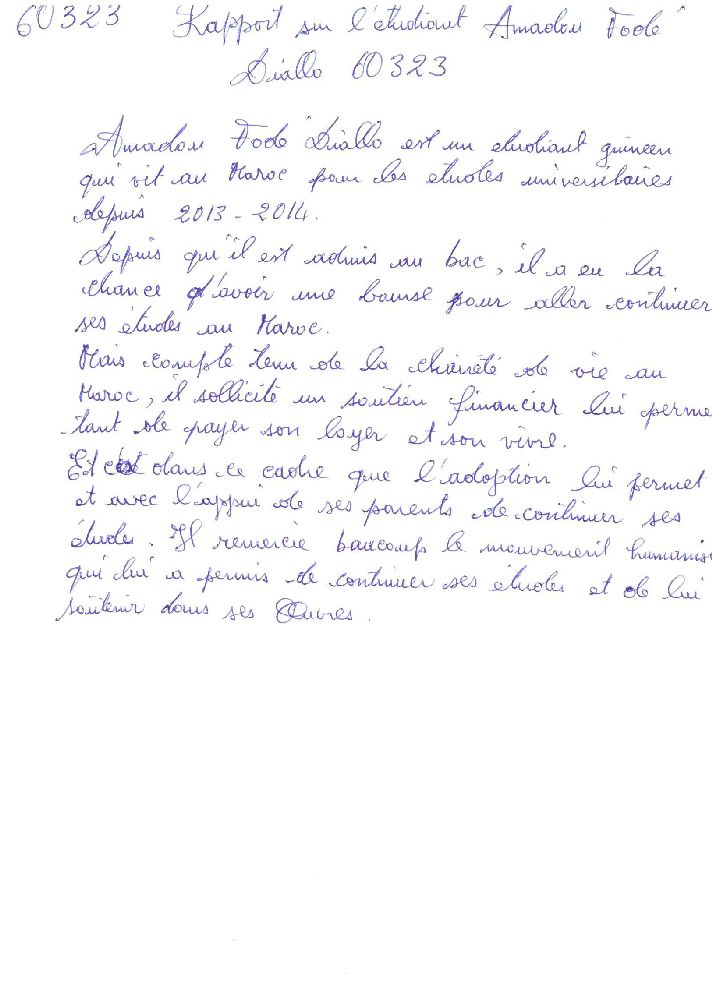 60323 Rapport sur l'étudiant Amadou Fodé
Diallo 60323
Amadou Fodé Diallo est un etudiant guineen
qui vit au Maroc pour les études universitaires
depuis 2013 - 2014.
Depuis qu'il est admis au bac, il a eu la
chance d'avoir une bourse pour aller continuer
ses études au Maroc.
Mais compte tenu de la chèreté de vie au
Maroc, il sollicite un soutien financier lui perme
tant de payer son loyer et son vivre.
Et c'est dans ce cadre que l'adoption lui permet
et avec l'appui de ses parents de continuer ses
études. Il remercie baucoup le mouvement humanis
qui lui a permis de continuer ses études et de lui
soutenir dans ses Œuvres.